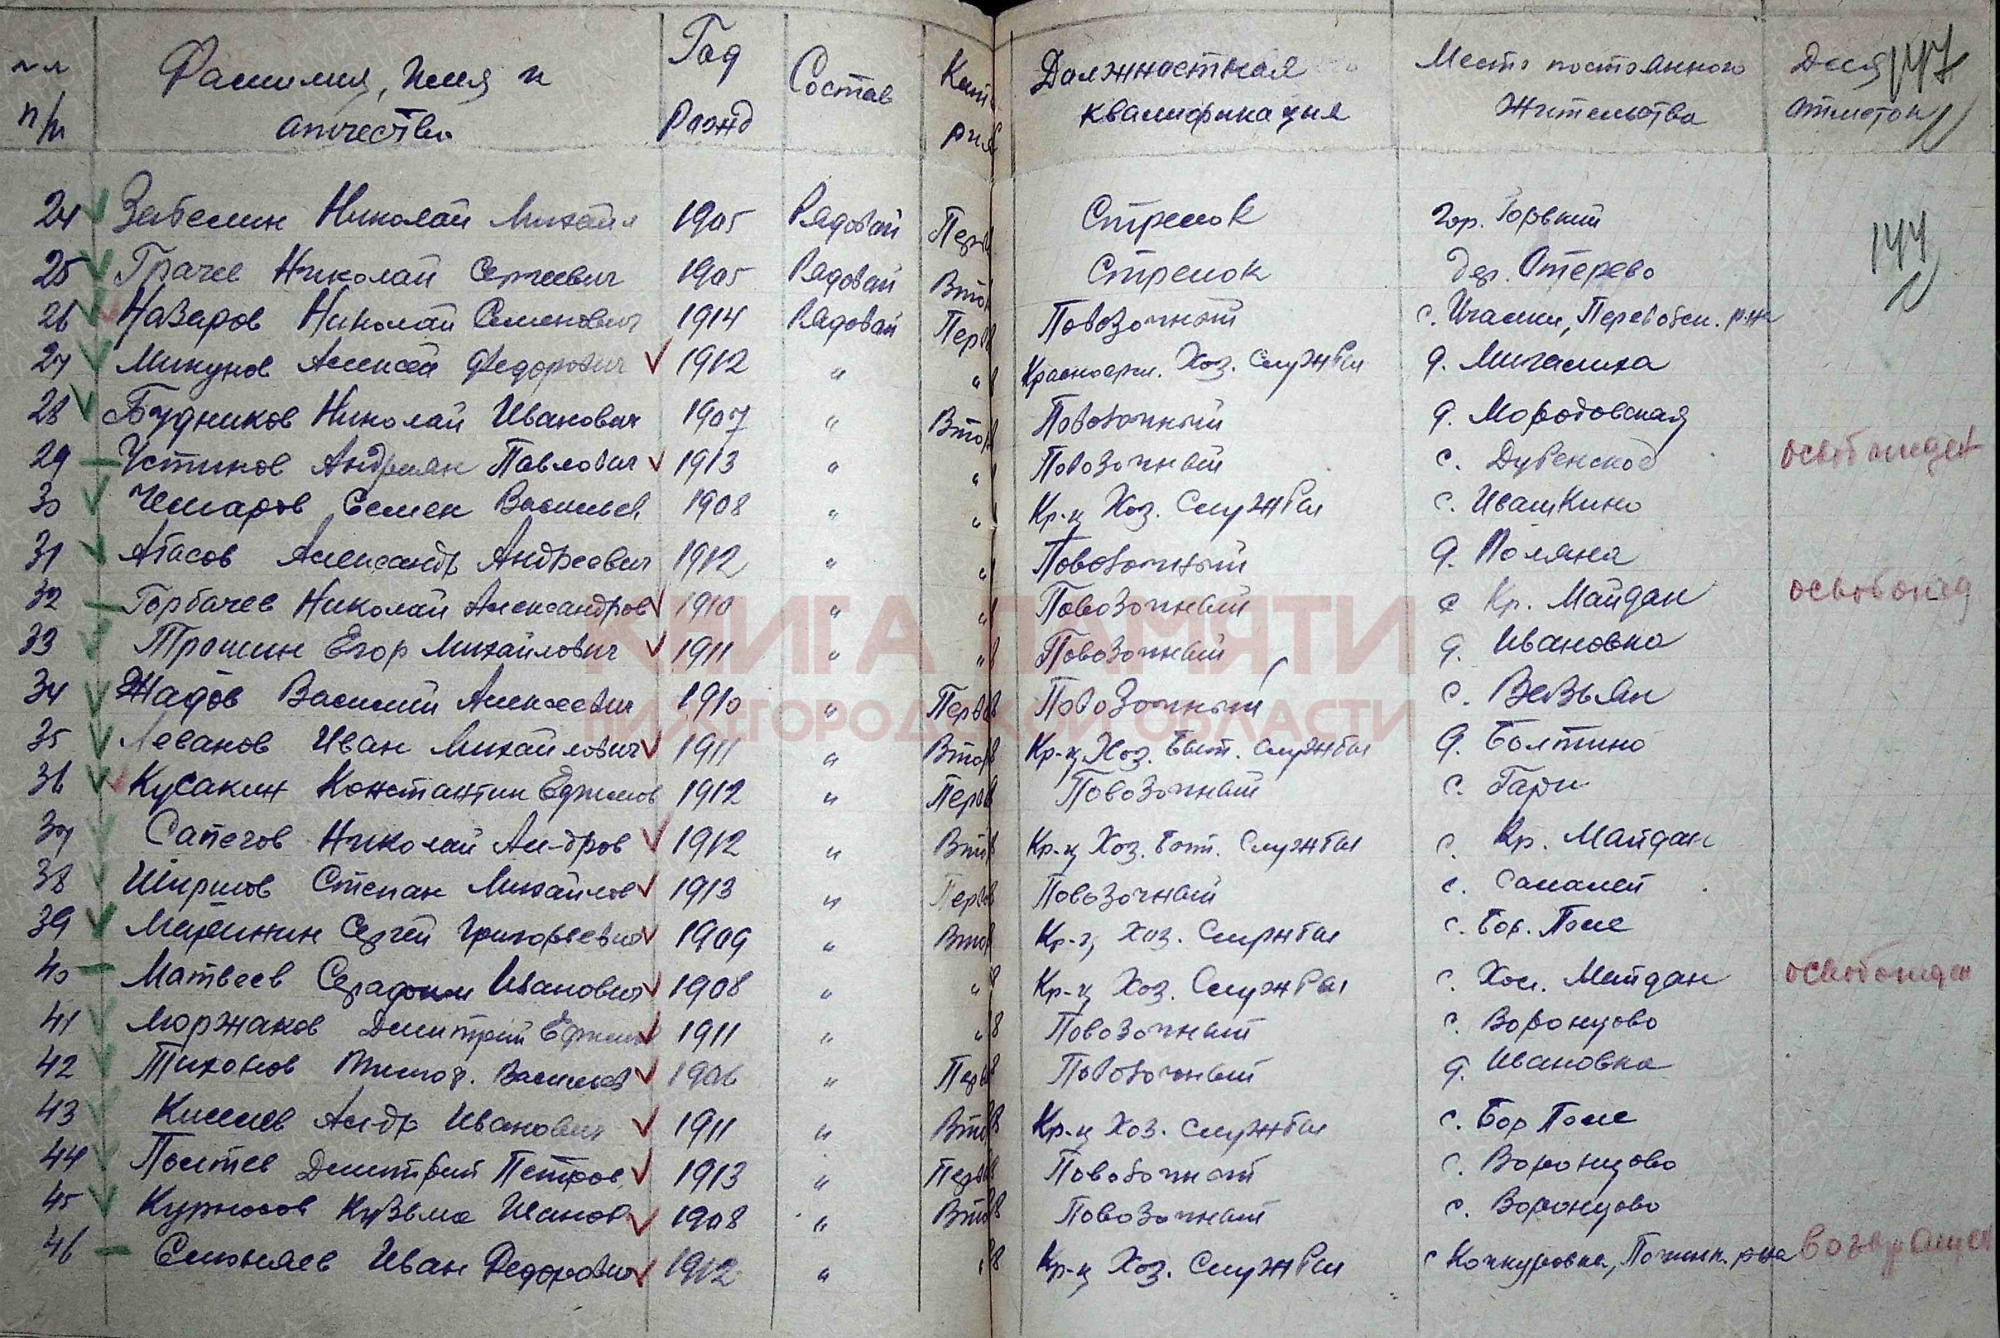 п/п Фамилия, Имя и отчество Год рожд Состав Кате рия Должностная квалификация Место постоянного жительства Для отметок 147
24 Забелин Николай Михайл 1905 Рядовой Перв Стрелок гор. Горький 144
25 Грачев Николай Сергеевич 1905 Рядовой Втор Стрелок дер. Отерево
26 Назаров Николай Семенович 1914 Рядовой Перв Повозочный с. Ичалки, Перевозск. р-на
27 Микунов Алексей Федорович 1912 " " Красноарм. Хоз. Службы д. Мигалиха
28 Будников Николай Иванович 1907 " Втор Повозочный д. Мородовская
29 Устинов Андриян Павлович 1913 " " Повозочный с. Дубенское освобожден
30 Чемаров Семен Васильев 1908 " " Кр-ц Хоз. Службы с. Ивашкино
31 Агасов Александр Андреевич 1912 " " Повозочный д. Поляна
32 Горбачев Николай Александров 1910 " " Повозочный с Кр. Майдан освобожд
33 Трошин Егор Михайлович 1911 " " Повозочный д. Ивановка
34 Жадов Василий Алексеевич 1910 " Перв Повозочный с. Вазьян
35 Леванов Иван Михайлович 1911 " Втор Кр-ц Хоз. Быт. службы д. Болтино
36 Кусакин Константин Ефимов 1912 " Перв Повозочный с. Гари
37 Сапегов Николай Ал-дров 1912 " Втор Кр-ц Хоз. Быт. Службы с. Кр. Майдан
38 Ширшов Степан Михайлов 1913 " Перв Повозочный с. Саланей
39 Сергей Григорьевич 1909 " Втор Кр-ц Хоз. Службы с. Бол. Поле
40 Матвеев Серафим Иванович 1908 " " Кр-ц Хоз. Службы с. Хол. Майдан освобожден
41 Моржаков Дмитрий Ефимов 1911 " " Повозочный с. Воронцово
42 Тихонов Тимоф. Васильев 1906 " Перв Повозочный д. Ивановка
43 Киселев Ал-др Иванович 1911 " Втор Кр-ц Хоз. службы с. Бор Поле
44 Дмитрий Петров 1913 " Перв Повозочный с. Воронцово
45 Курносов Кузьма Иванов 1908 " Втор Повозочный с. Воронцово
46 Иван Федорович 1912 " " Кр-ц Хоз. Службы с Кочкуровка, Починк. р-на возвращен
КНИГА ПАМЯТИ
НИЖЕГОРОДСКОЙ ОБЛАСТИ